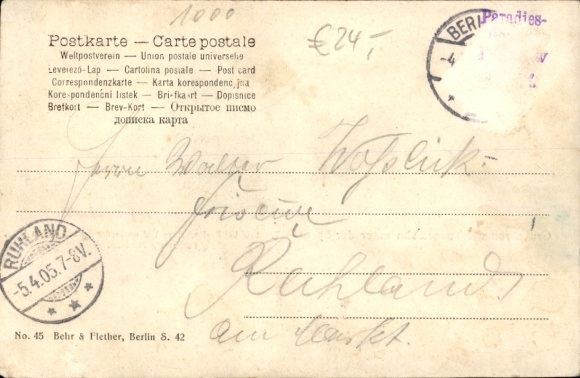 1000
€24,-
Postkarte — Carte postale
Weltpostverein — Union postale universelle
Levelező-Lap — Cartolina postale — Post card
Correspondenzkarte — Karta korespondencyjna
Korespondenční listek — Brefkaart — Dopisnice
Brefkort — Brev-Kort — Открытое писмо
дописка карта
BERL
Paradies-
-4
Herrn Walter
Friseur
Ruhland
am Markt.
RUHLAND
-5.4.05.7-8V.
No. 45 Behr & Flether, Berlin S. 42